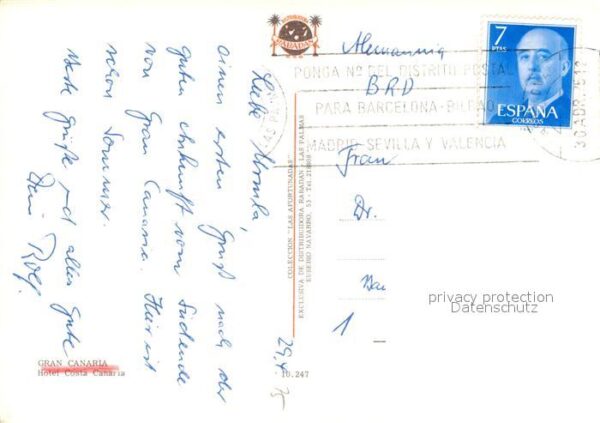 Liebe Monika,
einen ersten Gruß nach der
guten Ankunft vom Südende
von Gran Canaria. Hier ist
schon Sommer.
Beste Grüße und alles Gute
Dein Rolf.
29.4.75
GRAN CANARIA
Hotel Costa Canaria
10.247
COLECCION "LAS AFORTUNADAS"
EXCLUSIVA DE DISTRIBUIDORA RABADAN - LAS PALMAS
EUSEBIO NAVARRO, 53 - Tel.
DISTRIBUIDORA
RABADAN
Alemannia
BRD
Frau
Dr.
1
PONGA Nº DEL DISTRITO POSTAL
PARA BARCELONA-BILBAO
MADRID-SEVILLA Y VALENCIA
30 ABR. 75 12
7
PTAS
ESPAÑA
CORREOS
privacy protection
Datenschutz